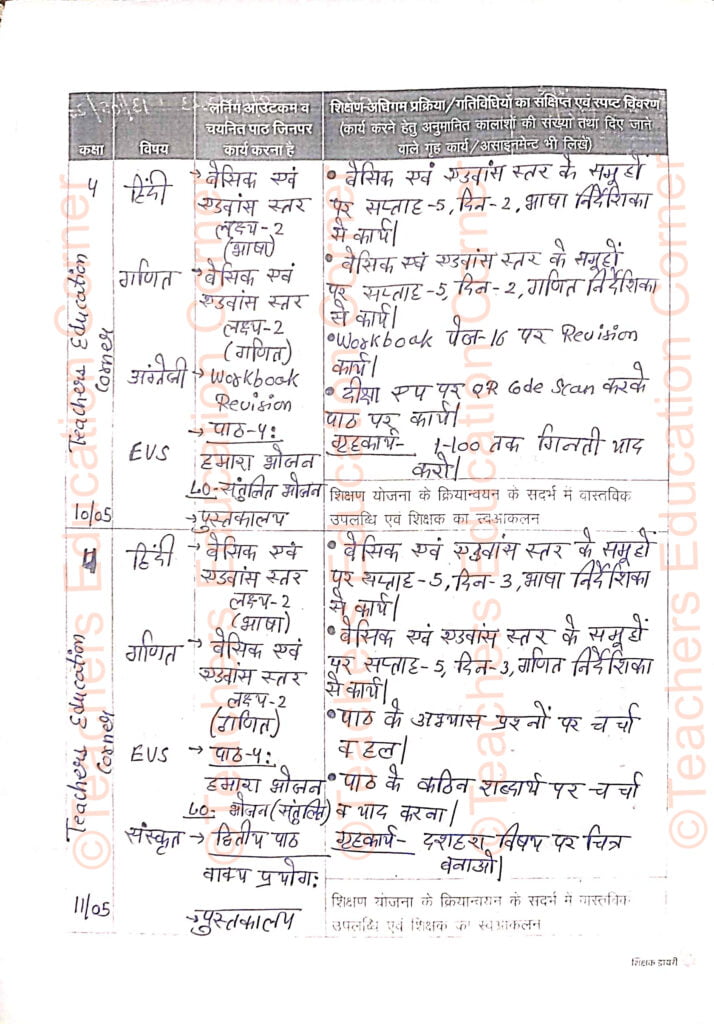 लर्निंग आउटकम व
चयनित पाठ जिनपर
कार्य करना है
शिक्षण-अधिगम प्रक्रिया/गतिविधियों का संक्षिप्त एवं स्पष्ट विवरण
(कार्य करने हेतु अनुमानित कालांशों की संख्या तथा दिए जाने
वाले गृह कार्य/असाइनमेन्ट भी लिखें)
कक्षा
विषय
5
हिंदी
→ बेसिक एवं
एडवांस स्तर
लक्ष्य-2
(भाषा)
• बेसिक एवं एडवांस स्तर के समूहों
पर सप्ताह-5, दिन-2, भाषा निर्देशिका
से कार्य|
गणित
→ बेसिक एवं
एडवांस स्तर
लक्ष्य-2
(गणित)
• बेसिक एवं एडवांस स्तर के समूहों
पर सप्ताह-5, दिन-2, गणित निर्देशिका
से कार्य|
अंग्रेजी
→ Workbook
Revision
• Workbook पेज-16 पर Revision
कार्य|
EVS
→ पाठ-4:
हमारा भोजन
LO-संतुलित भोजन
→ पुस्तकालय
• दीक्षा एप पर QR Code Scan करके
पाठ पर कार्य|
गृहकार्य- 1-100 तक गिनती याद
करो|
शिक्षण योजना के क्रियान्वयन के सदर्भ में वास्तविक
उपलब्धि एवं शिक्षक का स्वआकलन
Teachers Education
Corner
10/05
हिंदी
→ बेसिक एवं
एडवांस स्तर
लक्ष्य-2
(भाषा)
• बेसिक एवं एडवांस स्तर के समूहों
पर सप्ताह-5, दिन-3, भाषा निर्देशिका
से कार्य|
गणित
→ बेसिक एवं
एडवांस स्तर
लक्ष्य-2
(गणित)
• बेसिक एवं एडवांस स्तर के समूहों
पर सप्ताह-5, दिन-3, गणित निर्देशिका
से कार्य|
EVS
→ पाठ-4:
हमारा भोजन
LO- भोजन(संतुलित)
• पाठ के अभ्यास प्रश्नों पर चर्चा
व हल|
• पाठ के कठिन शब्दार्थ पर चर्चा
व याद करना|
संस्कृत
→ द्वितीय पाठ
वाक्य प्रयोग:
→ पुस्तकालय
गृहकार्य- दशहरा विषय पर चित्र
बनाओ|
शिक्षण योजना के क्रियान्वयन के सदर्भ में वास्तविक
उपलब्धि एवं शिक्षक का स्वआकलन
Teachers Education
Corner
11/05
शिक्षक डायरी
©Teachers Education Corner
©Teachers Education Corner
©Teachers Education Corner
©Teachers Education Corner
©Teachers Education Corner